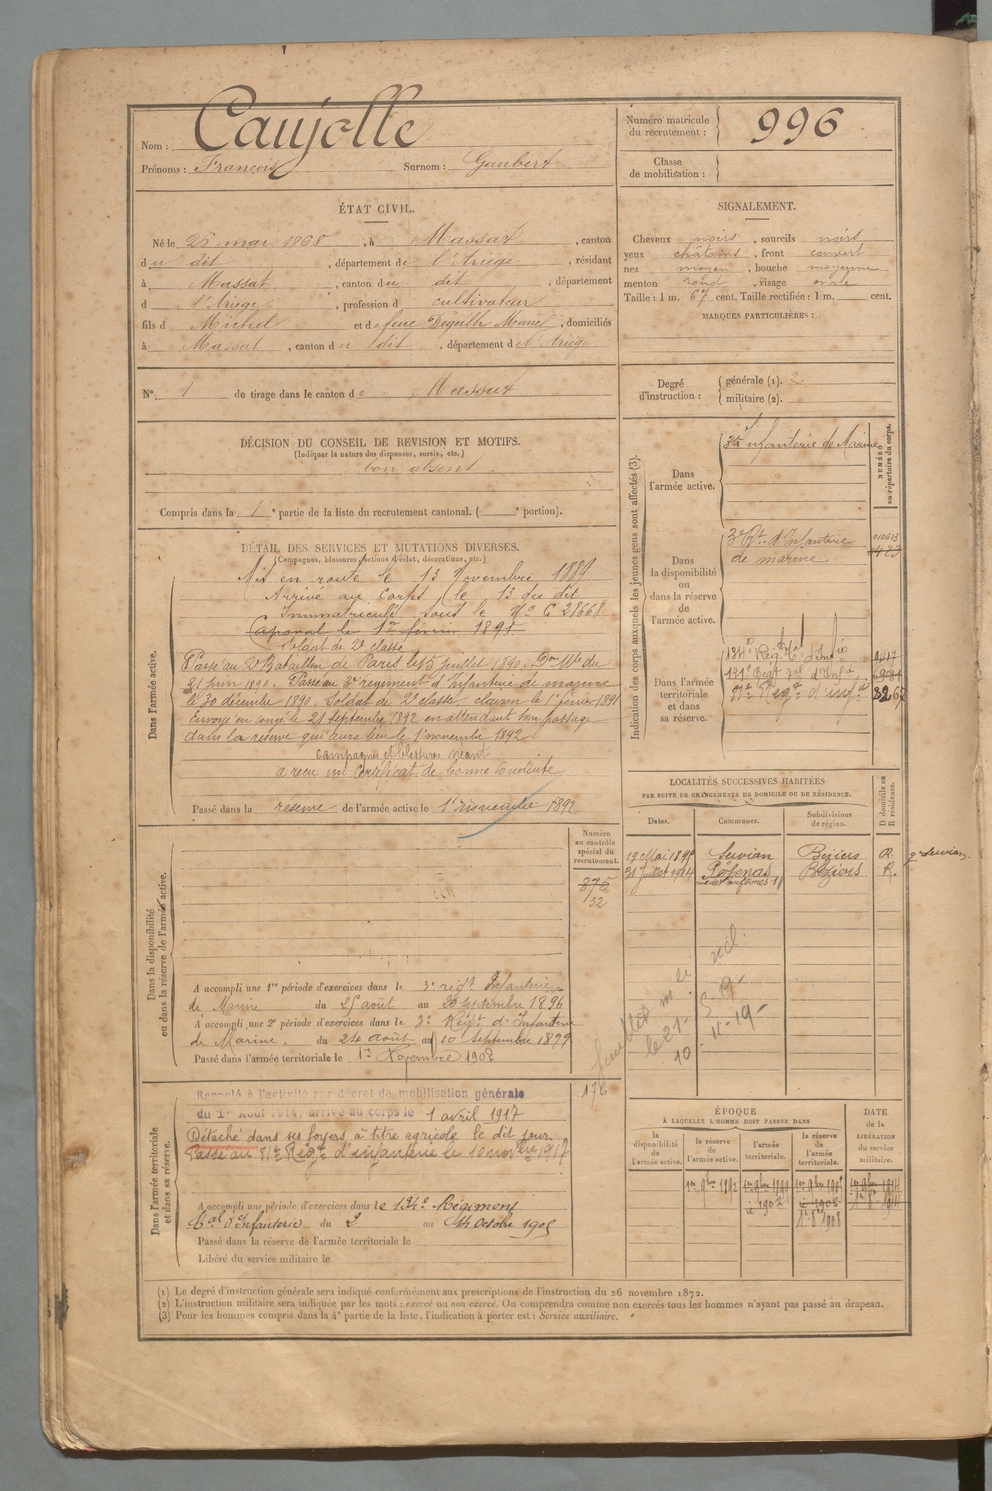 Nom : Caujolle
Prénoms : François Surnom : Gaubert
Numéro matricule
du recrutement : 996
Classe
de mobilisation :
ÉTAT CIVIL.
Né le 26 mai 1868, à Massat, canton
du dit, département de l'Ariège, résidant
à Massat, canton du dit, département
d l'Ariège, profession d cultivateur
fils d Michel et de feue Degeilh Marie, domiciliés
à Massat, canton du dit, département de l'Ariège
N° 1 de tirage dans le canton de Massat
SIGNALEMENT.
Cheveux noirs, sourcils noirs
yeux châtains, front couvert
nez moyen, bouche moyenne
menton rond, visage ovale
Taille : 1 m. 67 cent. Taille rectifiée : 1 m. cent.
MARQUES PARTICULIÈRES :
Degré
d'instruction :
générale (1). 2
militaire (2).
DÉCISION DU CONSEIL DE REVISION ET MOTIFS.
(Indiquer la nature des dispenses, sursis, etc.)
bon absent
Compris dans la 1e partie de la liste du recrutement cantonal. ( e portion).
DÉTAIL DES SERVICES ET MUTATIONS DIVERSES.
(Campagnes, blessures, actions d'éclat, décorations, etc.)
Dans l'armée active.
Mis en route le 13 Novembre 1889
Arrivé au corps le 13 du dit
Immatriculé sous le No C 28668
Caporal le 1er février 1891
Soldat de 2e classe
Passé au 2e Bataillon de Paris le 15 juillet 1890. Don Mle du
21 juin 1890. Passé au 3e régiment d'Infanterie de marine
le 30 décembre 1890. Soldat de 2e classe clairon le 1er février 1891
Envoyé en congé le 21 septembre 1892 en attendant son passage
dans la réserve qui aura lieu le 1er novembre 1892
Campagnes et blessures néant
a reçu un Certificat de bonne conduite
Passé dans la réserve de l'armée active le 1er novembre 1892
Indication des corps auxquels les jeunes gens sont affectés (3).
NUMÉRO
au répertoire du corps.
Dans
l'armée active.
Infanterie de Marine
Dans
la disponibilité
ou
dans la réserve
de
l'armée active.
3e Rt. d'Infanterie
de marine
Dans l'armée
territoriale
et dans
sa réserve.
LOCALITÉS SUCCESSIVES HABITÉES
PAR SUITE DE CHANGEMENTS DE DOMICILE OU DE RÉSIDENCE.
Dates. Communes. Subdivisions
de région. D domicile ou
R résidence.
Servian Béziers R.
31 Juillet 1914 Pézenas Béziers R.
Numéro
au contrôle
spécial du
recrutement.
875
32
Dans la disponibilité
ou dans la réserve de l'armée active.
A accompli une 1re période d'exercices dans le 3e régt. Infanterie
de Marine du 25 août au 20 septembre 1896
A accompli une 2e période d'exercices dans le 3e Régt d'Infanterie
de Marine. du 24 août au 10 septembre 1899
Passé dans l'armée territoriale le 1er Novembre 1902
176
Dans l'armée territoriale
et dans sa réserve.
Rappelé à l'activité par décret de mobilisation générale
du 1er Août 1914, arrivé au corps le 1 avril 1917
Détaché dans ses foyers à titre agricole le dit jour
Passé au 81e Régt d'infanterie le 10 novbre 1917
A accompli une période d'exercices dans le 134e Régiment
tal d'Infanterie du 2 au 14 Octobre 1905
Passé dans la réserve de l'armée territoriale le
Libéré du service militaire le
ÉPOQUE
À LAQUELLE L'HOMME DOIT PASSER DANS
la
disponibilité
de
l'armée active.
la réserve
de
l'armée active.
l'armée
territoriale.
la réserve
de
l'armée
territoriale.
DATE
de la
LIBÉRATION
du service
militaire.
1er 9bre 1892
(1) Le degré d'instruction générale sera indiqué conformément aux prescriptions de l'instruction du 26 novembre 1872.
(2) L'instruction militaire sera indiquée par les mots : exercé ou non exercé. On comprendra comme non exercés tous les hommes n'ayant pas passé au drapeau.
(3) Pour les hommes compris dans la 4e partie de la liste, l'indication à porter est : Service auxiliaire.